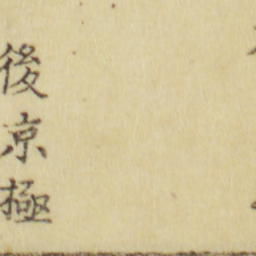 後京極